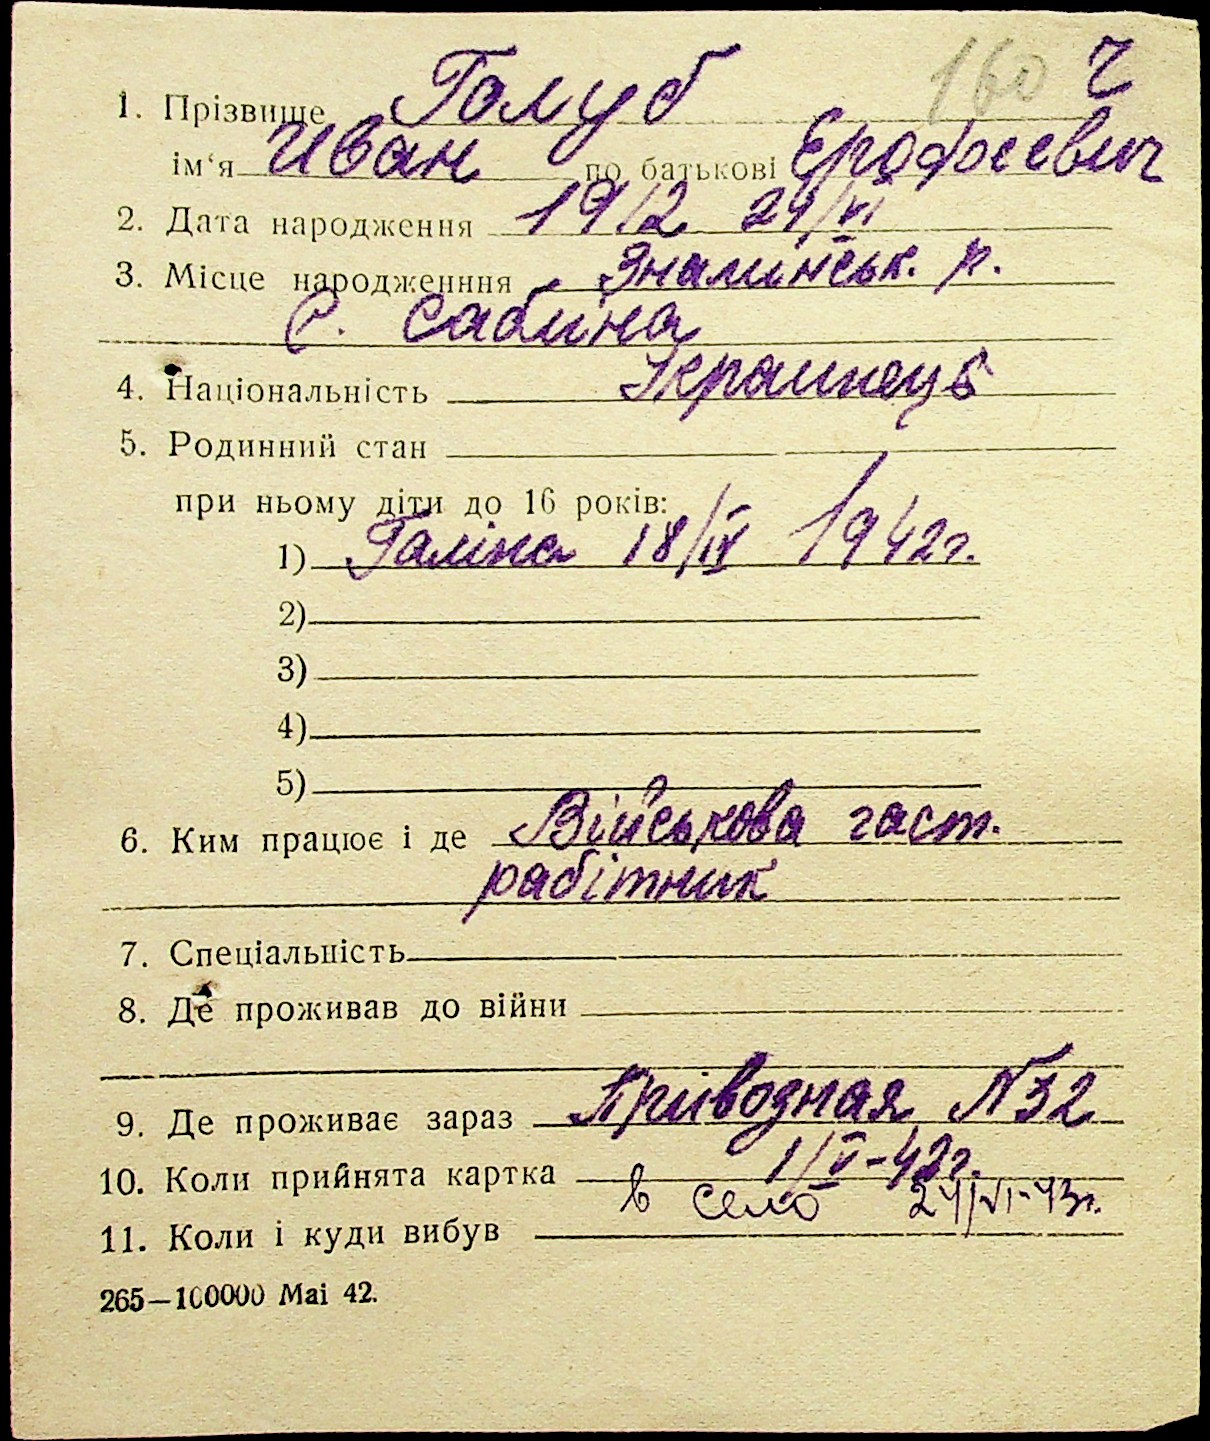 160 Ч
1. Прізвище Голуб
ім'я Иван по батькові Ерофеевич
2. Дата народження 1912 24/VI
3. Місце народженння Знаминськ. р.
с. Сабліна
4. Національність Украинець
5. Родинний стан
при ньому діти до 16 років:
1) Галіна 18/IV 1942г.
2)
3)
4)
5)
6. Ким працює і де Військова част.
рабітник
7. Спеціальність
8. Де проживав до війни
9. Де проживає зараз Приводная №32
10. Коли прийнята картка 1/V-42г.
11. Коли і куди вибув в село 24/VI-43г.
265—100000 Mai 42.